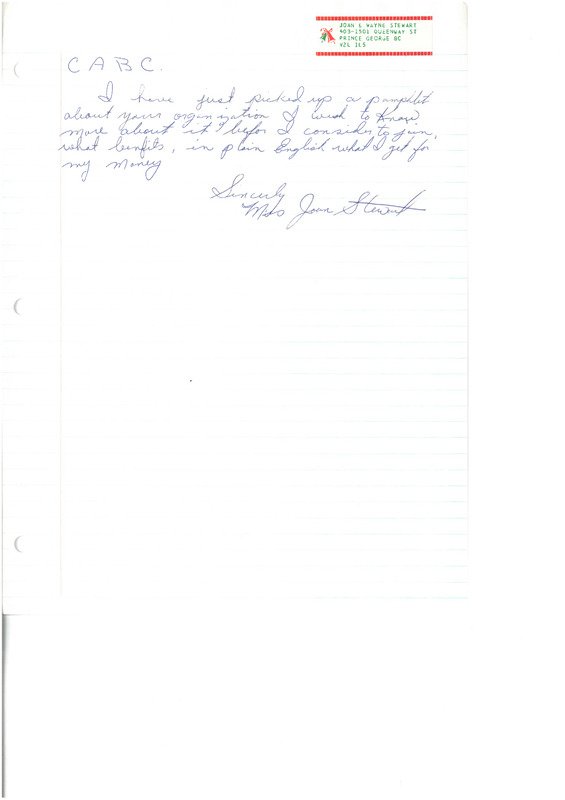 JOAN & WAYNE STEWART
403-1501 QUEENWAY ST
PRINCE GEORGE BC
V2L 1L5
C A B C.
I have just picked up a pamphlit
about your organization I wish to know
more about it befor I consider to join,
what benfits, in plain English what I get for
my money
Sincerly
Mrs Joan Stewart